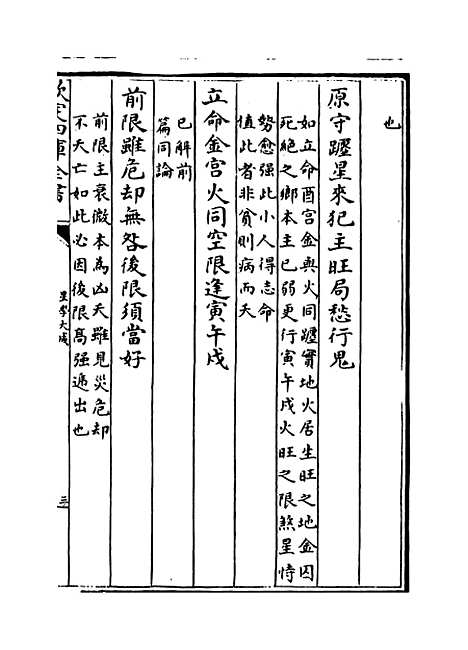 也
原守躔星來犯主旺局愁行鬼
如立命酉宫金與火同躔實地火居生旺之地金囚
死絶之鄉本主已弱更行寅午戌火旺之限煞星恃
勢愈强此小人得志命
值此者非貧則病而夭
立命金宫火同空限逢寅午戌
已解前
篇同論
前限雖危却無咎後限須當好
前限主衰微本為凶夭雖見災危却
不夭亡如此必因後限髙强逓出也
欽定四庫全書
星學大成
三